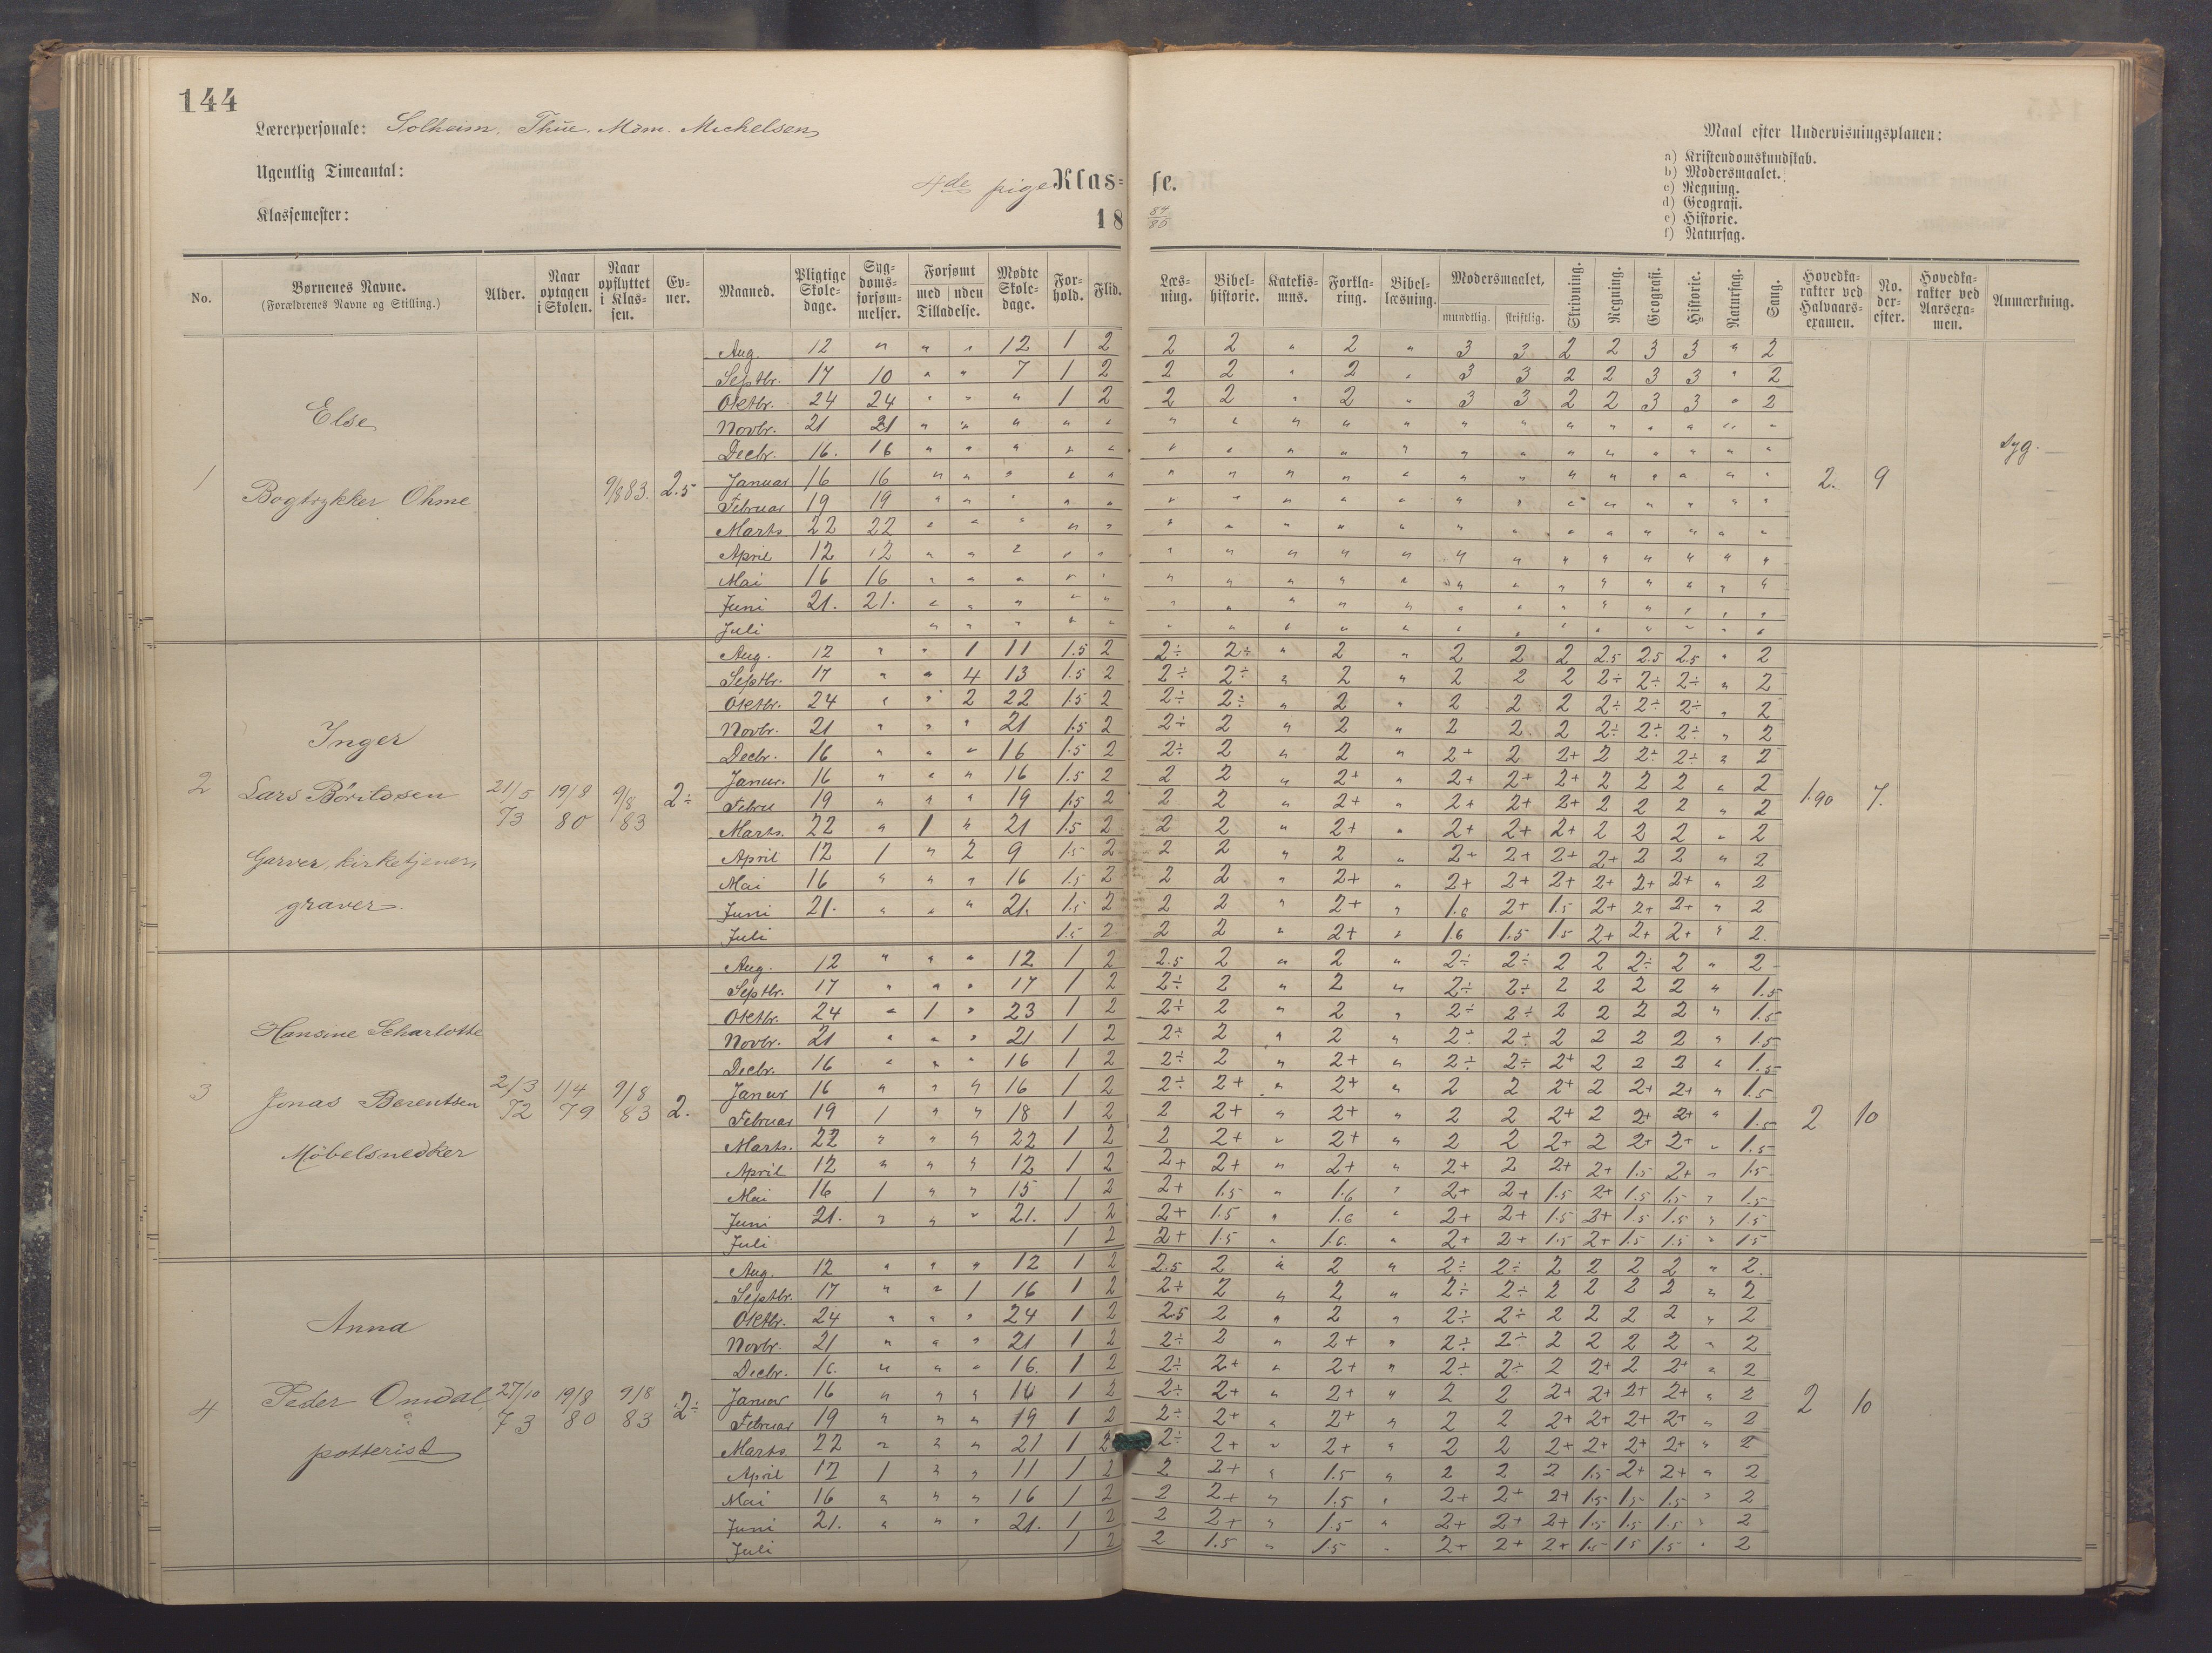 144
Lærerpersonale: Solheim, Thue, Mdm. Michelsen
Ugentlig Timeantal:
4de pige Klas- se.
Klassemester:
18 84/85
Maal efter Undervisningsplanen:
a) Kristendomskundskab.
b) Modersmaalet.
c) Regning.
d) Geografi.
e) Historie.
f) Naturfag.
No. | Børnenes Navne. (Forældrenes Navne og Stilling.) | Alder. | Naar optagen i Skolen. | Naar opflyttet i Klassen. | Evner. | Maaned. | Pligtige Skoledage. | Sygdomsforsømmelser. | Forsømt med uden Tilladelse. | Mødte Skoledage. | Forhold. | Flid. | Læsning. | Bibelhistorie. | Katekismus. | Forklaring. | Bibellæsning. | Modersmaalet, mundtlig. skriftlig. | Skrivning. | Regning. | Geografi. | Historie. | Naturfag. | Sang. | Hovedkarakter ved Halvaarsexamen. | No. derefter. | Hovedkarakter ved Aarsexamen. | Anmærkning.
1 Else
Bogtrykker Öhme 9/8 83. 2.5
2. 9 syg.
Aug. 12 " " " 12 1 2 2 2 " 2 " 3 3 2 2 3 3 " 2
Septbr. 17 10 " " 7 1 2 2 2 " 2 " 3 3 2 2 3 3 " 2
Oktbr. 24 24 " " " 1 2 2 2 " 2 " 3 3 2 2 3 3 " 2
Novbr. 21 21 " " " " " " " " " " " " " " " " " "
Decbr. 16. 16 " " " " " " " " " " " " " " " " " "
Januar 16 16 " " " " " " " " " " " " " " " " " "
Februar 19 19 " " " " " " " " " " " " " " " " " "
Marts 22 22 " " " " " " " " " " " " " " " " " "
April 12 12 " " " " " " " " " " " " " " " " " "
Mai 16 16 " " " " " " " " " " " " " " " " " "
Juni 21. 21. " " " " " " " " " " " " " " " " " "
Juli " " " " " " " " " " " " " " " " " "
2 Inger
Lars Böritosen 21/5 73 19/8 80 9/8 83 2÷
Garver, kirketjener,
graver.
1.90 7.
Aug. 12 " " 1 11 1.5 2 2÷ 2÷ " 2 " 2 2 2 2.5 2.5 2.5 " 2
Septbr. 17 " " 4 13 1.5 2 2÷ 2÷ " 2 " 2 2 2 2÷ 2÷ 2÷ " 2
Oktbr. 24 " " 2 22 1.5 2 2÷ 2÷ " 2 " 2 2 2 2÷ 2÷ 2÷ " 2
Novbr. 21 " " " 21 1.5 2 2÷ 2 " 2 " 2 2. 2 2÷ 2÷ 2÷ " 2
Decbr. 16 " " " 16 1.5 2 2÷ 2 " 2 " 2+ 2 2+ 2 2÷ 2÷ " 2
Janur. 16 " " " 16 1.5 2 2 2 " 2+ " 2+ 2+ 2+ 2 2 2 " 2
Febru 19 " " " 19 1.5 2 2 2 " 2+ " 2+ 2+ 2+ 2 2 2 " 2
Marts. 22 " 1 " 21 1.5 2 2 2 " 2+ " 2+ 2+ 2+ 2 2 2 " 2
April 12 1 " 2 9 1.5 2 2 2 " 2 " 2+ 2+ 2+ 2+ 2 2 " 2
Mai 16 " " " 16 1.5 2 2 2 " 2+ " 2+ 2+ 2+ 2+ 2+ 2+ " 2
Juni 21. " " " 21. 1.5 2 2 2 " 2+ " 1.6 2+ 1.5 2+ 2+ 2+ " 2
Juli 1.5 2 2 2 " 2+ " 1.6 1.5 1.5 2+ 2+ 2+ " 2.
3 Hansine Scharlotte
Jonas Berentsen 2/3 72 1/4 79 9/8 83 2.
Möbelsnedker
2 10
Aug. 12 " " " 12 1 2 2.5 2 " 2 " 2÷ 2÷ 2 2 2÷ 2 " 2
Septbr. 17 " " " 17 1 2 2÷ 2 " 2 " 2÷ 2÷ 2 2 2 2 " 1.5
Oktbr. 24 " 1 " 23 1 2 2÷ 2 " 2 " 2÷ 2÷ 2 2 2 2 " 1.5
Novbr. 21 " " " 21 1 2 2÷ 2 " 2 " 2÷ 2÷ 2 2 2 2 " 1.5
Decbr. 16 " " " 16 1 2 2÷ 2 " 2+ " 2÷ 2÷ 2+ 2 2 2 " 1.5
Janur 16 " " " 16 1 2 2÷ 2+ " 2+ " 2 2 2+ 2 2+ 2+ " 1.5
Februar 19 1 " " 18 1 2 2 2+ " 2+ " 2 2 2+ 2 2+ 2+ " 1.5
Marts. 22 " " " 22 1 2 2 2+ " 2+ " 2 2 2+ 2 2+ 2+ " 1.5
April 12 " " " 12 1 2 2+ 2+ " 2+ " 2+ 2 2+ 2+ 1.5 2+ " 1.5
Mai 16 1 " " 15 1 2 2+ 1.5 " 1.6 " 2+ 2+ 1.5 2+ 1.5 1.5 " 1.5
Juni 21. " " " 21. 1 2 2+ 1.5 " 1.6 " 2+ 2+ 1.5 2+ 1.5 1.5 " 1.5
Juli 1 2 2+ 1.5 " 1.6. " 2+ 2+ 1.5 2+ 1.5 1.5 " 1.5
4 Anna
Peder Omdal, 27/10 73 19/8 80 9/8 83 2÷
potterist
2 10
Aug. 12 " " " 12 1 2 2.5 2 " 2 " 2÷ 2÷ 2 2 2 2 " 2.
Septbr. 17 " " 1 16 1 2 2÷ 2 " 2 " 2÷ 2÷ 2 2 2 2 " 2
Oktbr. 24 " " " 24 1 2 2.5 2 " 2 " 2÷ 2÷ 2 2 2 2 " 2
Novbr. 21 " " " 21 1 2 2÷ 2 " 2+ " 2÷ 2÷ 2 2 2 2 " 2
Decbr. 16. " " " 16. 1 2 2÷ 2+ " 2+ " 2÷ 2÷ 2 2+ 2 2+ " 2
Janur 16 " " " 16 1 2 2÷ 2+ " 2+ " 2 2 2+ 2+ 2+ 2+ " 2
Februar 19 " " " 19 1 2 2÷ 2+ " 2+ " 2 2 2+ 2+ 2+ 2+ " 2
Marts. 22 " " " 21 1 2 2÷ 2+ " 2+ " 2 2 2+ 2+ 2+ 2+ " 2
April 12 1 " " 11 1 2 2 2+ " 1.5 " 2 2 2 1.5 2+ 2+ " 2
Mai 16 " " " 16 1 2 2 2+ " 1.5 " 2+ 2+ 2+ 1.5 1.5 1.5 " 2
Juni 21. " " " 21. 1 2 2 2+ " 1.5 " 2+ 2+ 2+ 1.5 1.5 1.5 " 2
Juli 1 2 2 1.5 " 1.5 " 2+ 2+ 2+ 1.5 1.5 1.5 " 2